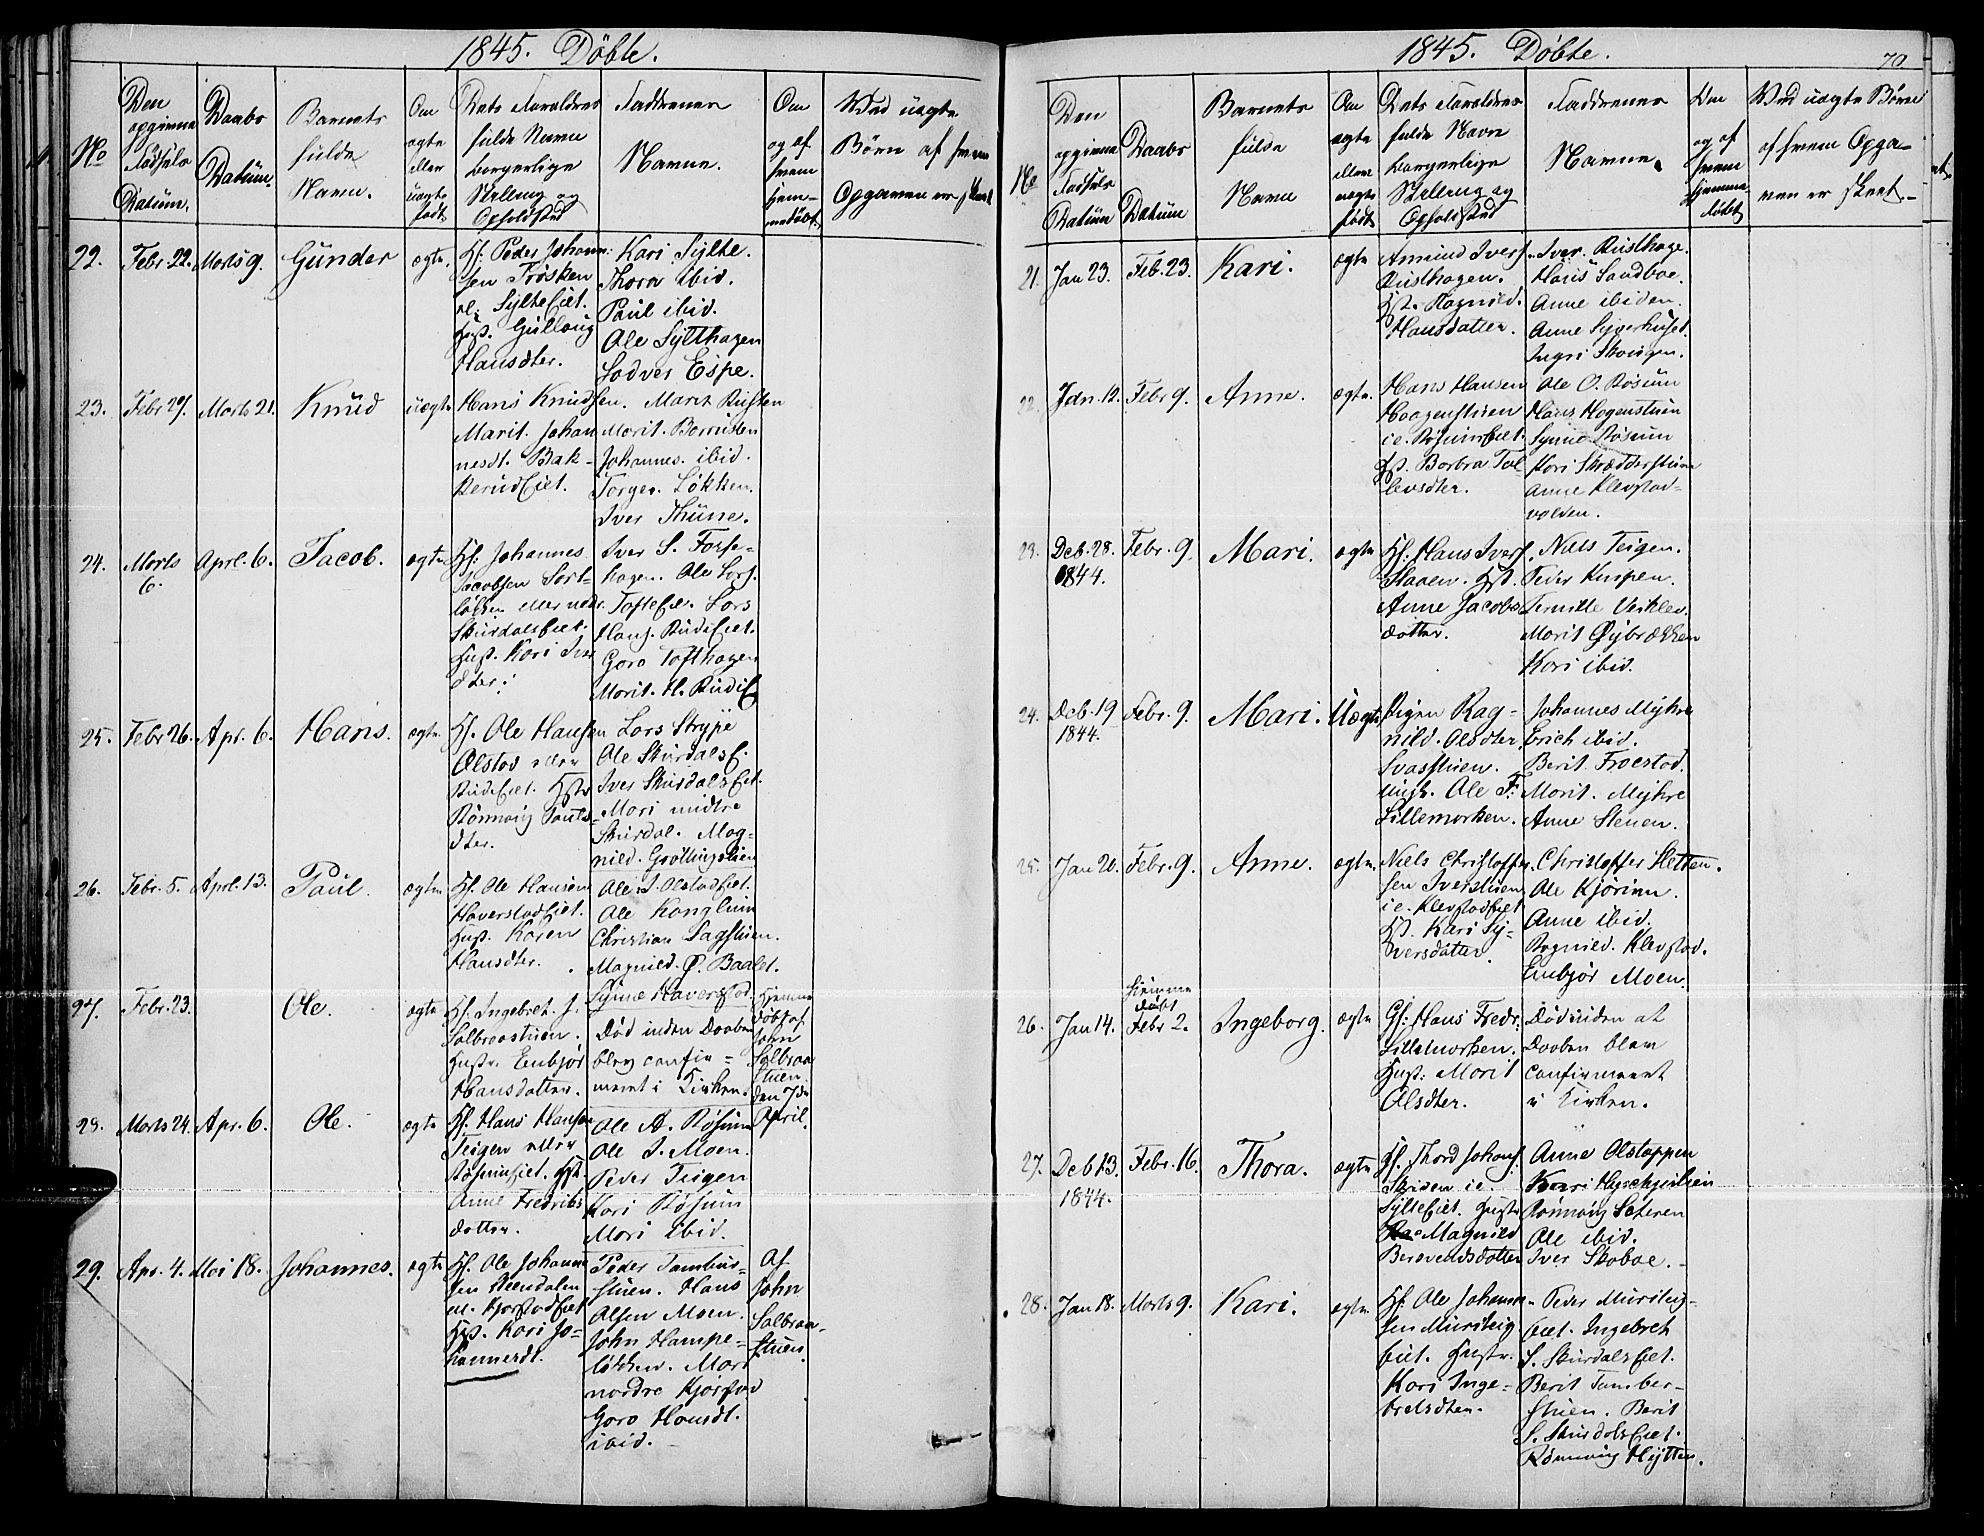 1845. Döbte.
No
Den opgivne Fødsels Datum.
Daabs Datum.
Barnets fulde Navn.
Om ægte eller uægte født
Dets Forældres fulde Navne borgerlige Stilling og Opholdsted
Faddrenes Navne.
Om og af hvem hjemmedøbt.
Ved uægte Børn af hvem Opgaven er skeet
22. Febr. 22. Marts 9. Gunder ægte.
Gf. Peder Johannessen Trøsken
el: Sylteeiet.
Hust. Gullaug
Hansdter.
Kari Sylte.
Thora ibid.
Paul ibid.
Ole Sylthagen
Lodver Espe.
23. Febr 27. Marts 21. Knud uægte
Hans Knudsen.
Marit Johannesdt. Bakkerudeiet.
Marit Rusten
Marit.
Johannes. ibid.
Torger. Løkken.
Iver Thune.
24. Marts 6. Aprl. 6. Jacob. ægte
Gf. Johannes
Jacobsen
løkken eller nedr.
Skurdalseiet.
Hust. Kari Iversdter.
Iver S. Forsehagen. Ole Lars.
Tofteei. Lars
Hans. Rudieiet.
Goro Tofthagen
Marit. H. Rudiei
25. Febr 26. Apr. 6. Hans. ægte
Gf. Ole Hansen
Olstad eller
Rudieiet. Hstr
Rønnaug Paulsdter.
Lars Strype
Ole Skurdalsei.
Iver Skurdalseiet.
Mari midtre
Skurdal. Magnild. Grøttingslien
26. Febr. 5. Aprl. 13. Paul. ægte
Gf. Ole Hansen
Haverstadeiet.
Hust. Karen
Hansdter.
Ole J. Olstadeiet.
Ole Konglien
Christian Sagstuen.
Magnild. P. Baalst.
Synne Haverstad.
27. Febr. 23. Ole. ægte
Gf. Ingebret J.
Solbraastuen.
Hustr. Embjør
Hansdatter.
Død inden Daaben
blev confirmeret i Kirken.
Hjemmedøbt af
John
Solbraastuen
den 7de
April.
28. Marts 24. Apr. 6. Ole. ægte
Gf. Hans Hansen
Teigen eller
Røsumeiet. Hst.
Anne Fredriksdatter.
Ole A. Røsum
Ole J. Moen.
Peder Teigen
Kari Røsum
Mari ibid.
29. Apr. 4. Mai 18. Johannes. ægte
Gf. Ole Johannessen Steendalen
el. Kjorstadeiet
Hst. Kari Johannesdt.
Peder Tamburstuen. Hans
Olsen Moen.
John Hampeløkken. Mari
nordre Kjørstad
Goro Hansdt.
ibid.
Af
John
Solbraastuen.
1845. Døbte. 70
No
Den opgivne Fødsels Datum
Daabs Datum
Barnets fulde Navn
Om ægte eller uægte født
Dets Forældres fulde Navne borgerlige Stilling og Opholdsted
Faddrenes Navne.
Om og af hvem hjemmedøbt
Ved uægte Børn af hvem Opgaven er skeet.
21. Jan 23. Feb. 23. Kari. ægte
Amund Ivers.
Rusthagen.
Hst. Ragnild.
Hansdatter.
Iver. Rusthage.
Hans Sandboe.
Anne ibiden.
Anne Sygerhuset.
Ingri Skougen.
22. Jan. 12. Febr 9. Anne. ægte.
Hans Hansen
Haagenstuen
i e. Røsumeiet.
Hst. Borbra Tollevsdter.
Ole O. Røsum
Hans Hagenstuen
Synne Røsum
Kari Skrædderstuen
Anne Klevstadvolden.
23. Deb. 28. 1844. Febr. 9. Mari. ægte
Gf. Hans Ivers.
Hst.
Anne Jacobsdatter.
Niels Teigen.
Peder Kuspen.
Pernille
Marit Øybrækken
Kari ibid.
24. Deb. 19 1844. Febr. 9. Mari. Uægte
Pigen Ragnild. Olsdter
Svastuen.
ungk. Ole F:
Lillemorken.
Johannes Myhre
Erich ibid.
Berit. Froestad.
Marit. Myhre
Anne Steuen.
25. Jan 20. Febr. 9. Anne. ægte.
Niels Christoffersen Iverstuen
i e. Klevstadeiet
Hst. Kari Syversdatter.
Christoffer Sletten.
Ole Kjørum.
Anne ibid.
Ragnild. Klevstad.
Embjør Moen.
26. Jan 14. Hjemmedøbt Febr 2. Ingeborg. ægte
Gf: Hans Fredr:
Lillemorken.
Hust: Marit
Olsdter.
Død inden at
Daaben blev
confirmeret
i Kirken.
27. Deb 13. 1844. Febr. 16. Thora. ægte
Gf. Thord Johans.
Skriden i e.
Sylteeiet. Hustr
Magnild
Berevendsdatter
Anne Olstappen
Kari
Rønnaug Sateren
Ole ibid.
Iver Skaboe.
28. Jan 18. Marts 9. Kari. ægte
Gf: Ole Johannessen Mursteig
eiet. Hustr.
Kari Ingebretsdter.
Peder Mursteigeiet. Ingebret
S. Skurdalseiet.
Berit Tamberstuen. Berit
S. Skurdalseiet.
Rønnaug Hytten.